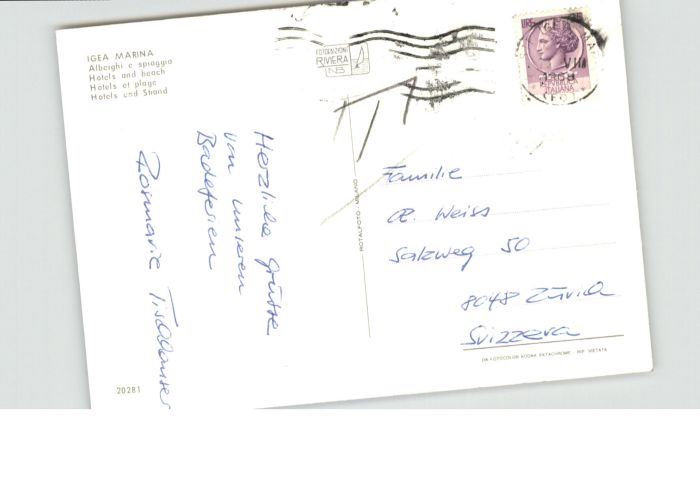 IGEA MARINA
Alberghi e spiaggia
Hotels and beach
Hôtels et plage
Hotels und Strand
Herzliche Grüsse
von unseren
Badeferien
Rosmarie
20281
ROTALFOTO - MILANO
FOTOEDIZIONI
RIVIERA
LIRE
REPVBBLICA
ITALIANA
Familie
Weiss
Salzweg 50
8048 Zürich
Svizzera
DA FOTOCOLOR KODAK EKTACHROME RIP. VIETATA